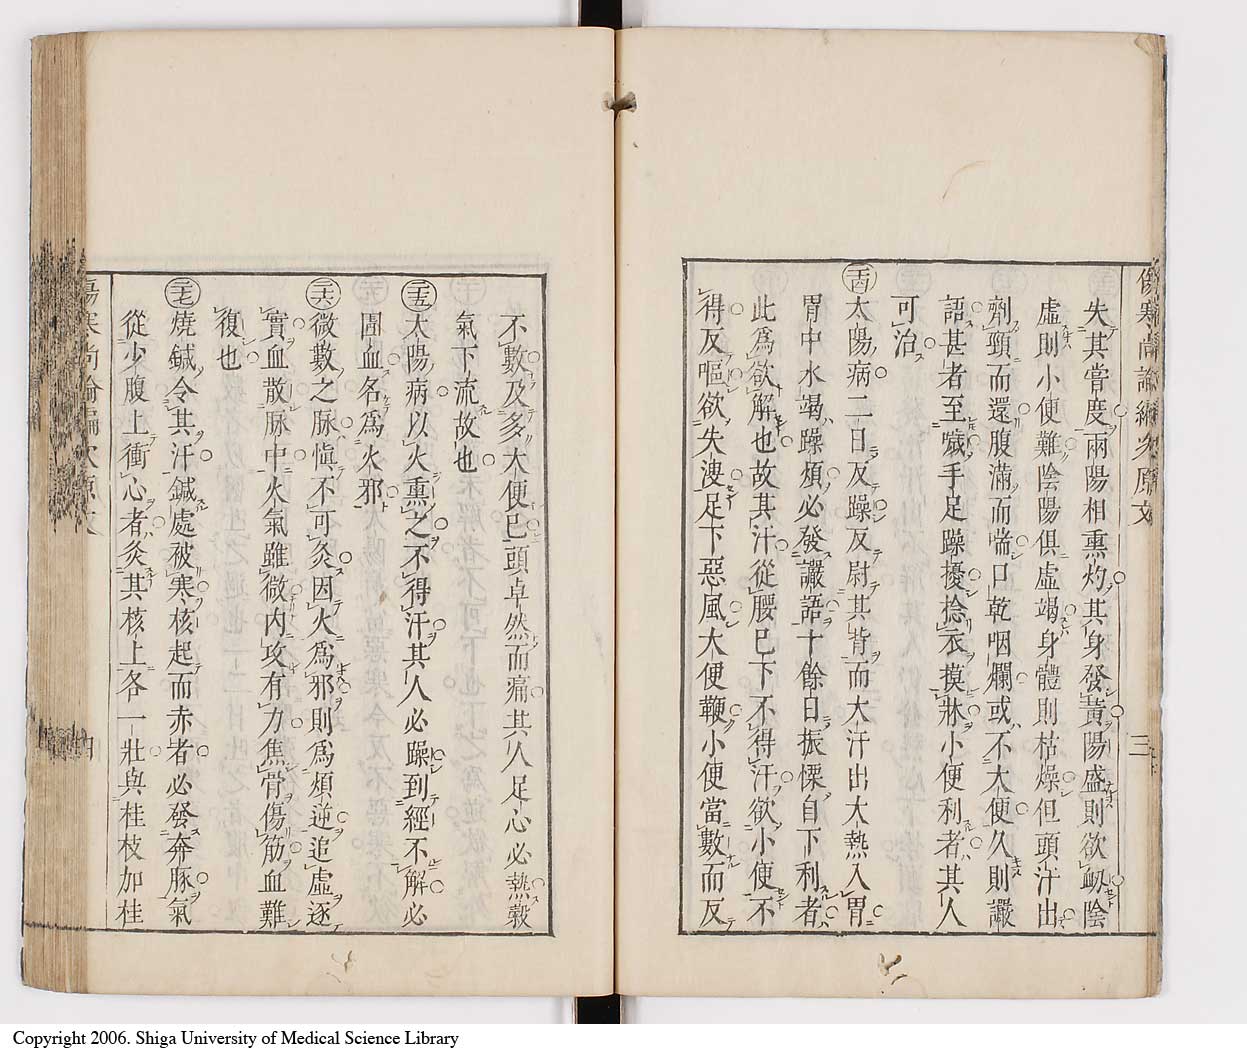 傷寒尚論編次原文
三
失其嘗度兩陽相熏灼其身發黃陽盛則欲衂陰
虛則小便難陰陽俱虛竭身體則枯燥但頭汗出
劑頸而還腹滿而喘口乾咽爛或不大便久則讝
語甚者至噦手足躁擾捻衣摸牀小便利者其人
可治
太陽病二日反躁反尉其背而大汗出大熱入胃
胃中水竭躁煩必發讝語十餘日振慄自下利者
此爲欲解也故其汗從腰巳下不得汗欲小便不
得反嘔欲失溲足下惡風大便鞕小便當數而反
不數及多大便巳頭卓然而痛其人足心必熱穀
氣下流故也
太陽病以火熏之不得汗其人必躁到經不解必
圊血名爲火邪
微數之脉愼不可灸因火爲邪則爲煩逆追虛逐
實血散脉中火氣雖微內攻有力焦骨傷筋血難
復也
燒鍼令其汗鍼處被寒核起而赤者必發奔豚氣
從少腹上衝心者灸其核上各一壯與桂枝加桂
傷寒尚論編次原文
四
Copyright 2006. Shiga University of Medical Science Library